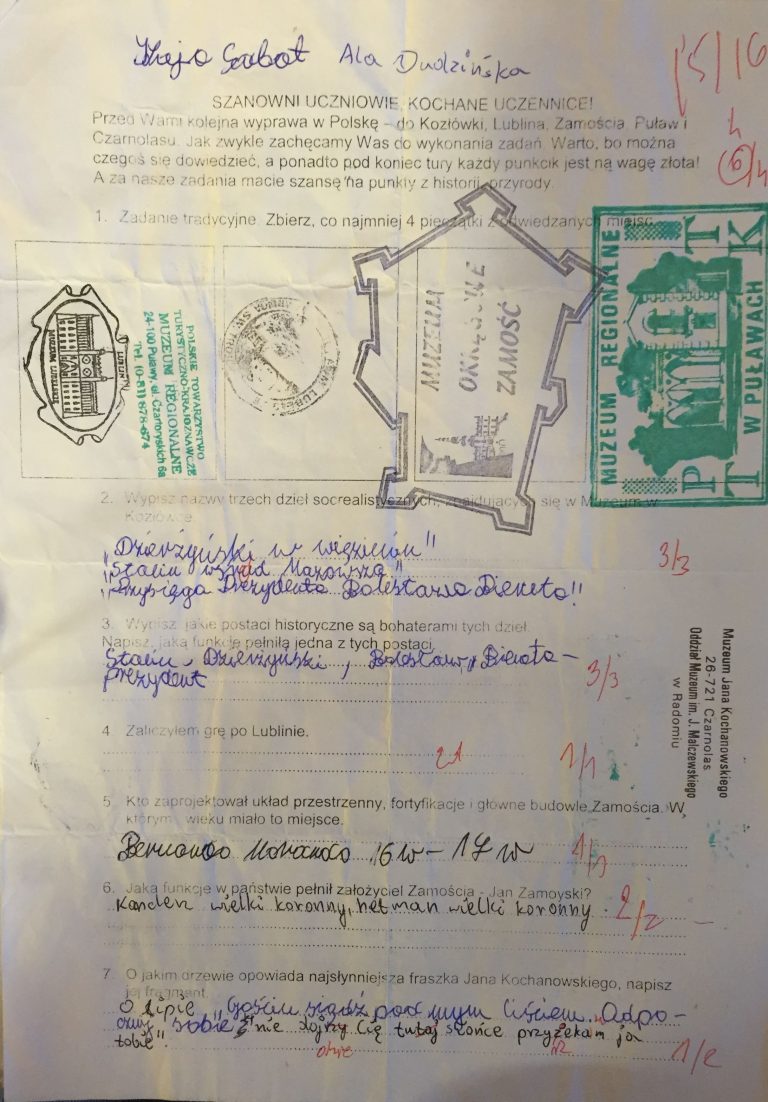 Ala Dudzińska
15/16
SZANOWNI UCZNIOWIE, KOCHANE UCZENNICE!
Przed Wami kolejna wyprawa w Polskę – do Kozłówki, Lublina, Zamościa, Puław i
Czarnolasu. Jak zwykle zachęcamy Was do wykonania zadań. Warto, bo można
czegoś się dowiedzieć, a ponadto pod koniec tury każdy punkcik jest na wagę złota!
A za nasze zadania macie szansę na punkty z historii, przyrody.
1. Zadanie tradycyjne. Zbierz, co najmniej 4 pieczątki z odwiedzanych miejsc.
LUBLIN
MUZEUM LUBELSKIE
POLSKIE TOWARZYSTWO
TURYSTYCZNO-KRAJOZNAWCZE
MUZEUM REGIONALNE
24-100 Puławy, ul. Czartoryskich 6a
Tel. (0-81) 878-674
MUZEUM
OKRĘGOWE
ZAMOŚĆ
MUZEUM REGIONALNE
PTTK
W PUŁAWACH
2. Wypisz nazwy trzech dzieł socrealistycznych, znajdujących się w Muzeum w
Kozłówce.
„Dzierżyński w więzieniu"
„Stalin wśród
„Przysięga Prezydenta Bolesława Bieruta!!
3/3
3. Wypisz, jakie postaci historyczne są bohaterami tych dzieł.
Napisz, jaką funkcję pełniła jedna z tych postaci.
Stalin, Dzierżyński, Bolesław Bieruta –
prezydent
3/3
Muzeum Jana Kochanowskiego
26-721 Czarnolas
Oddział Muzeum im. J. Malczewskiego
w Radomiu
4. Zaliczyłem grę po Lublinie.
21 1/1
5. Kto zaprojektował układ przestrzenny, fortyfikacje i główne budowle Zamościa. W
którym wieku miało to miejsce.
Bernando Morando 16 w – 17 w 1/1
6. Jaką funkcję w państwie pełnił założyciel Zamościa - Jan Zamoyski?
Kanclerz wielki koronny, hetman wielki koronny. 2/2
7. O jakim drzewie opowiada najsłynniejsza fraszka Jana Kochanowskiego, napisz
jej fragment.
O Lipie „Gościu siądź pod mym liściem. Odpo-
cznij sobie, nie dojrzy Cię tutaj słońce przyrzekam ja
tobie".
1/2